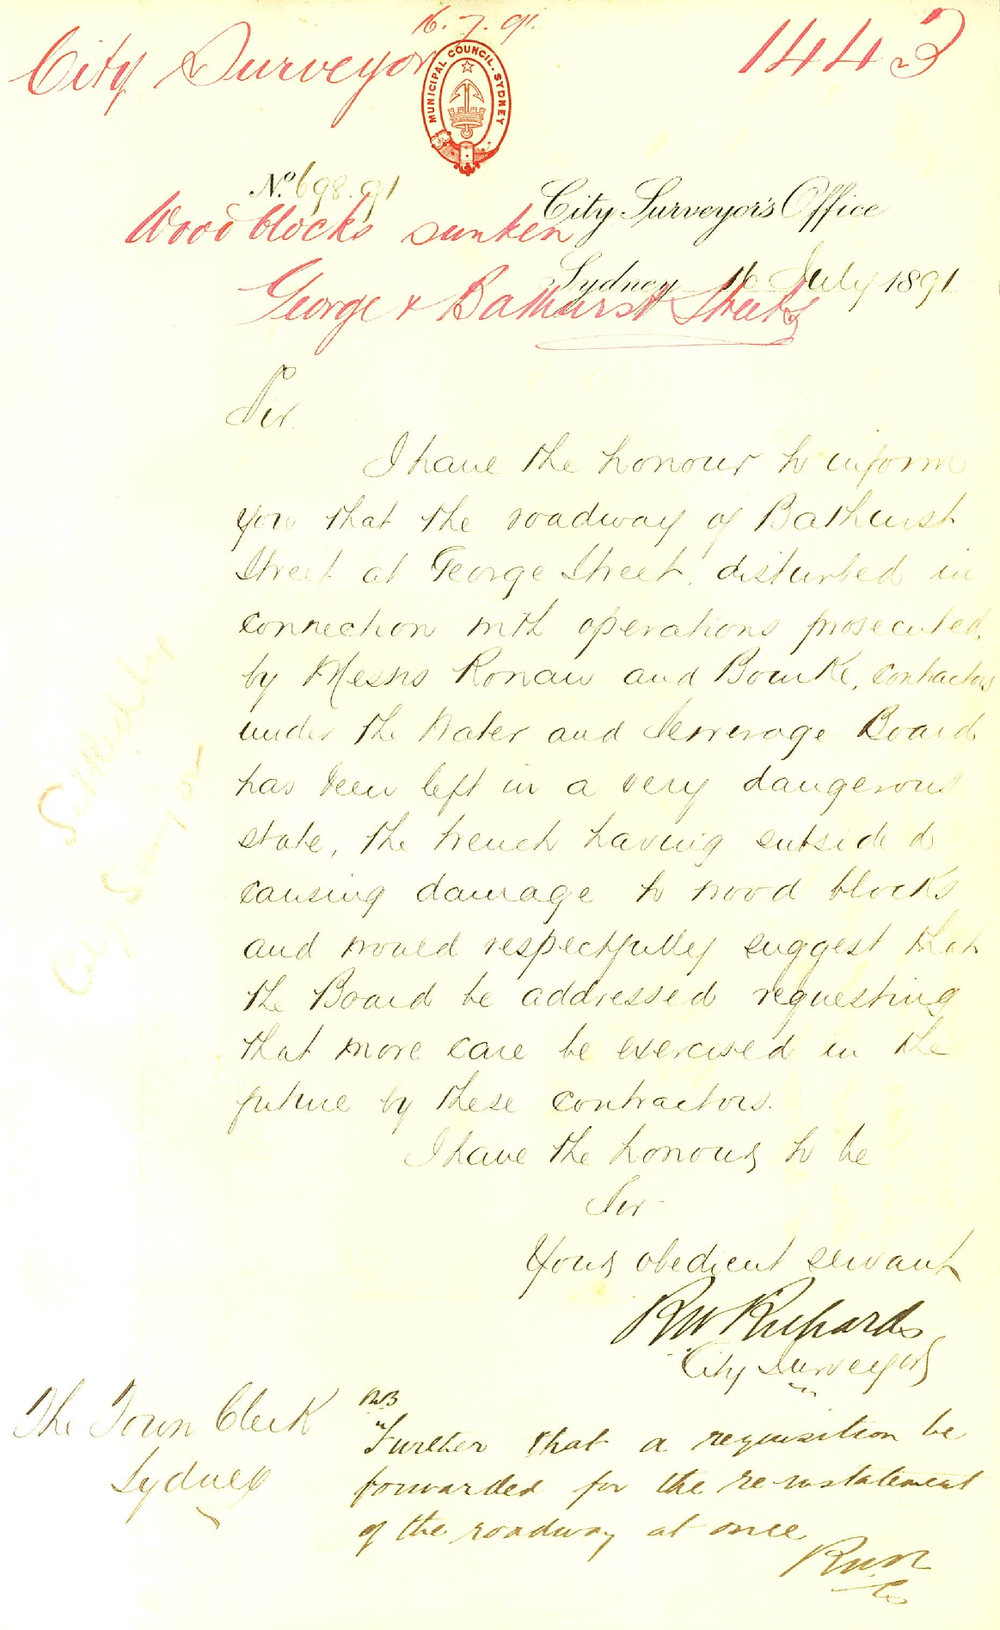 16.7.91.
City Surveyor
1443
MUNICIPAL COUNCIL. SYDNEY
No. 698.91
City Surveyor's Office
Wood blocks sunken
Sydney 16 July 1891
George & Bathurst Streets
Sir
I have the honour to inform
you that the roadway of Bathurst
Street at George Street, disturbed in
connection with operations prosecuted,
by Messrs Ronan and Bourke, contractors
under the Water and Sewerage Board
has been left in a very dangerous
state, the trench having subsided
causing damage to wood blocks
and would respectfully suggest that
the Board be addressed requesting
that more care be exercised in the
future by these contractors.
I have the honour to be
Sir
Your obedient servant
RW Richards
City Surveyor
The Town Clerk
Sydney
"Further that a requisition be
forwarded for the re-instatement
of the roadway at once
RWR
CS
City Surveyor